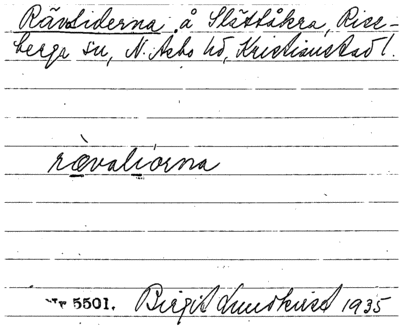 Rävliderna å Slättåkra, Risse-
berga sn, N. Åsbo hd, Kristianstad l.
rävaliorna
5501. Birgit Lundkvist 1935